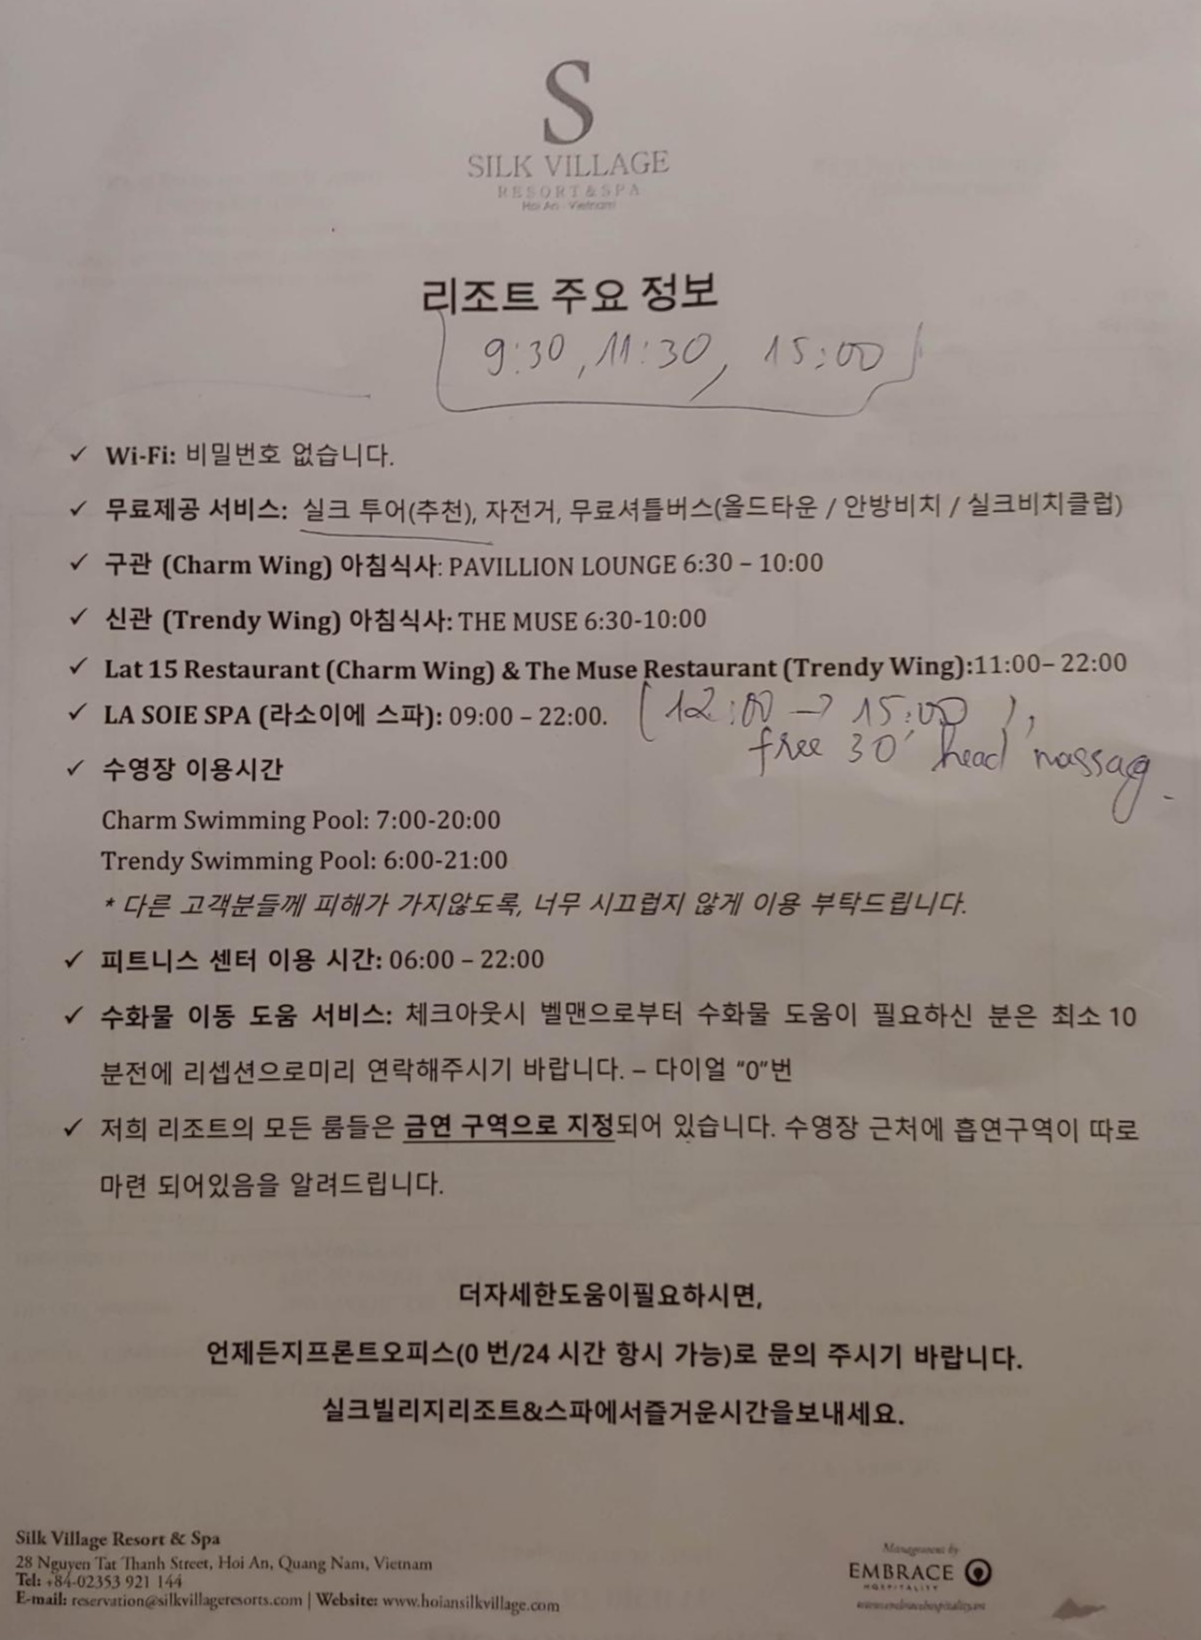 S
SILK VILLAGE
RESORT & SPA
Hoi An - Vietnam
리조트 주요 정보
9:30, 11:30, 15:00
✓ Wi-Fi: 비밀번호 없습니다.
✓ 무료제공 서비스: 실크 투어(추천), 자전거, 무료셔틀버스(올드타운 / 안방비치 / 실크비치클럽)
✓ 구관 (Charm Wing) 아침식사: PAVILLION LOUNGE 6:30 – 10:00
✓ 신관 (Trendy Wing) 아침식사: THE MUSE 6:30-10:00
✓ Lat 15 Restaurant (Charm Wing) & The Muse Restaurant (Trendy Wing):11:00– 22:00
✓ LA SOIE SPA (라소이에 스파): 09:00 – 22:00. (12:00 → 15:00),
free 30' head massag
✓ 수영장 이용시간
Charm Swimming Pool: 7:00-20:00
Trendy Swimming Pool: 6:00-21:00
* 다른 고객분들께 피해가 가지않도록, 너무 시끄럽지 않게 이용 부탁드립니다.
✓ 피트니스 센터 이용 시간: 06:00 – 22:00
✓ 수화물 이동 도움 서비스: 체크아웃시 벨맨으로부터 수화물 도움이 필요하신 분은 최소 10
분전에 리셉션으로미리 연락해주시기 바랍니다. – 다이얼 “0”번
✓ 저희 리조트의 모든 룸들은 금연 구역으로 지정되어 있습니다. 수영장 근처에 흡연구역이 따로
마련 되어있음을 알려드립니다.
더자세한도움이필요하시면,
언제든지프론트오피스(0 번/24 시간 항시 가능)로 문의 주시기 바랍니다.
실크빌리지리조트&스파에서즐거운시간을보내세요.
Silk Village Resort & Spa
28 Nguyen Tat Thanh Street, Hoi An, Quang Nam, Vietnam
Tel: +84-02353 921 144
E-mail: reservation@silkvillageresorts.com | Website: www.hoiansilkvillage.com
Management by
EMBRACE
HOSPITALITY